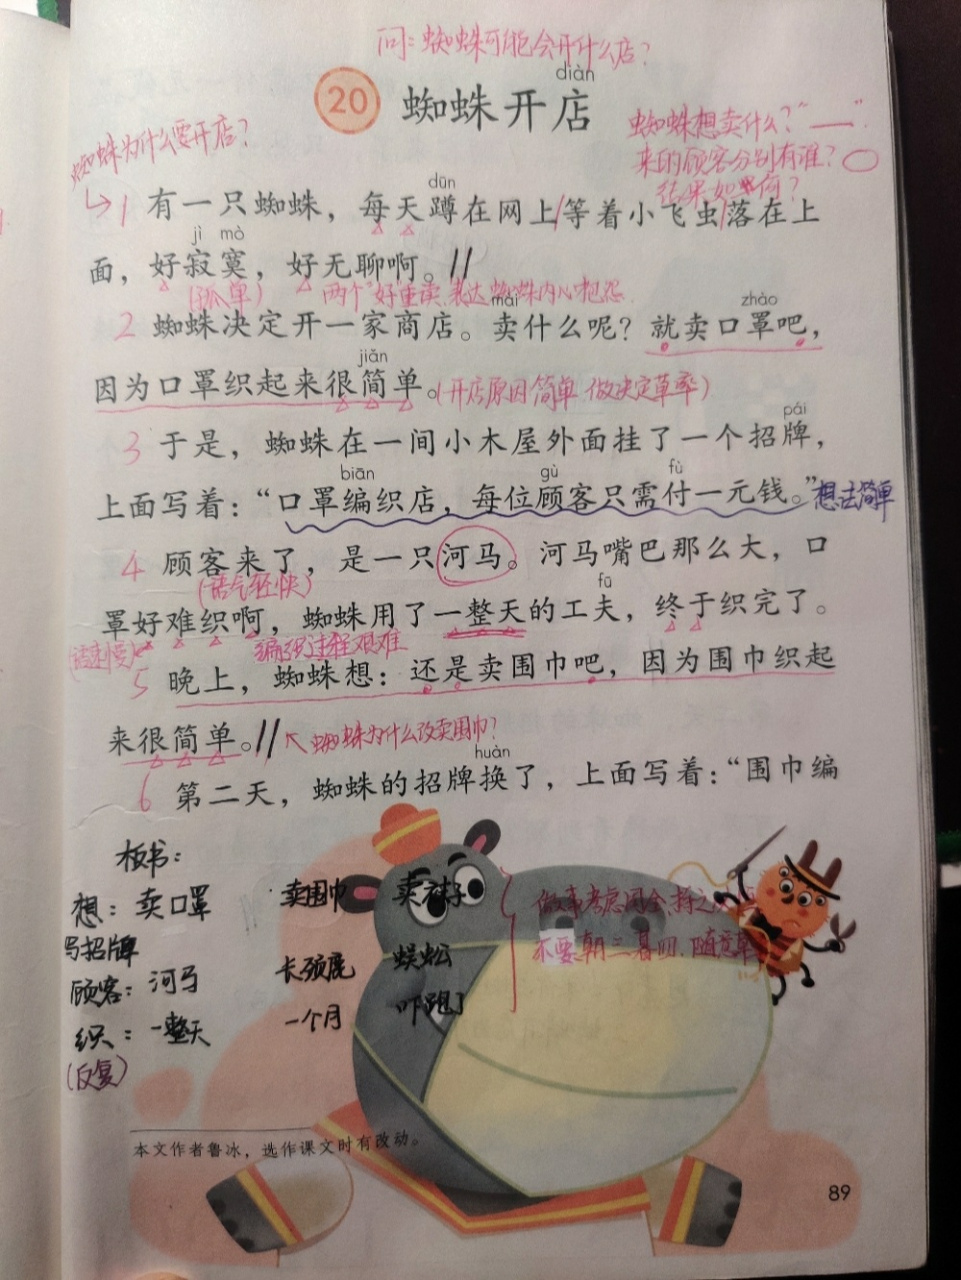 问：蜘蛛可能会开什么店？
diàn
20 蜘蛛开店
蜘蛛为什么要开店？
蜘蛛想卖什么？“——”
来的顾客分别有谁？○
结果如何？
dūn
1 有一只蜘蛛，每天蹲在网上等着小飞虫落在上
jì mò
面，好寂寞，好无聊啊。
(孤单) 两个“好”重读，表达蜘蛛内心抱怨
mài zhào
2 蜘蛛决定开一家商店。卖什么呢？就卖口罩吧，
jiǎn
因为口罩织起来很简单。(开店原因简单 做决定草率)
pái
3 于是，蜘蛛在一间小木屋外面挂了一个招牌，
biān gù fù
上面写着：“口罩编织店，每位顾客只需付一元钱。”想法简单
4 顾客来了，是一只河马。河马嘴巴那么大，口
(语气轻快) fū
罩好难织啊，蜘蛛用了一整天的工夫，终于织完了。
(语速慢) 编织过程艰难
5 晚上，蜘蛛想：还是卖围巾吧，因为围巾织起
来很简单。蜘蛛为什么改卖围巾？
huàn
6 第二天，蜘蛛的招牌换了，上面写着：“围巾编
板书：
想：卖口罩 卖围巾 卖袜子
写招牌
顾客：河马 长颈鹿 蜈蚣
织：一整天 一个月 吓跑了
(反复)
做事考虑周全，持之以
不要朝三暮四，随意草
本文作者鲁冰，选作课文时有改动。
89